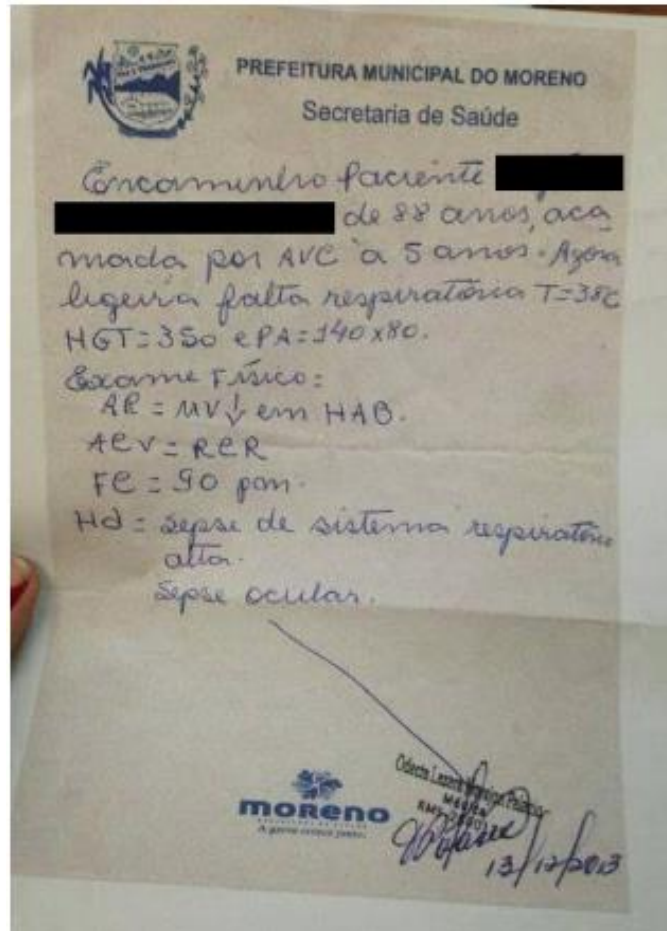 PREFEITURA MUNICIPAL DO MORENO
Secretaria de Saúde
Encaminho paciente
de 88 anos, aca
mada por AVC a 5 anos. Agora
ligeira falta respiratória T=38c
HGT=350 e PA=140x80.
Exame Físico:
AR = MV↓ em HAB.
ACV = RCR
FC = 90 pm.
Hd = sepse de sistema respiratório
alta.
sepse ocular.
moreno
A gente cresce junto.
Odecta
Médica
13/12/2013